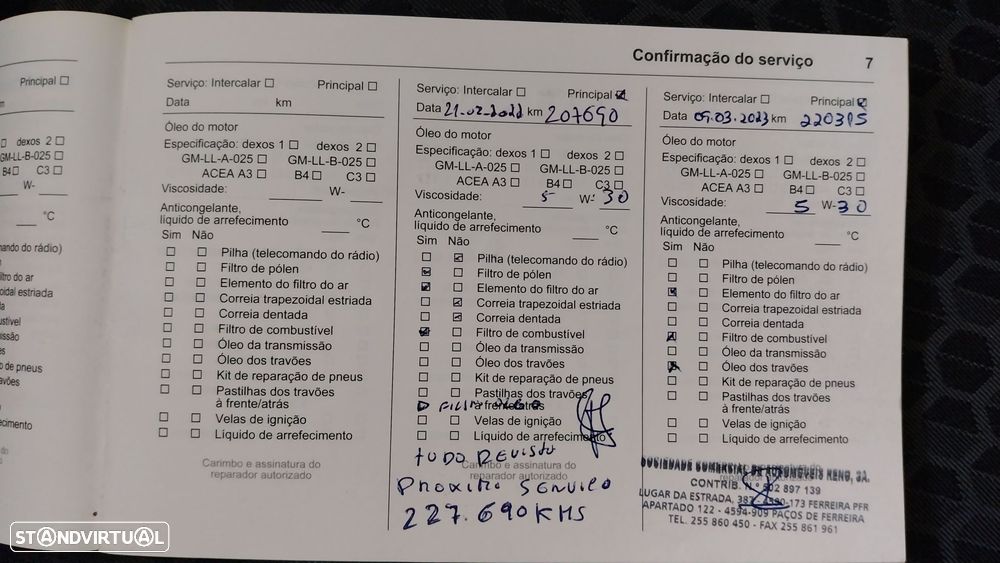 Confirmação do serviço 7
Principal ☐
dexos 2 ☐
GM-LL-B-025 ☐
B4 ☐ C3 ☐
W-
°C
Serviço: Intercalar ☐ Principal ☐
Data km
Óleo do motor
Especificação: dexos 1 ☐ dexos 2 ☐
GM-LL-A-025 ☐ GM-LL-B-025 ☐
ACEA A3 ☐ B4 ☐ C3 ☐
Viscosidade: W-
Anticongelante,
líquido de arrefecimento °C
Sim Não
☐ ☐ Pilha (telecomando do rádio)
☐ ☐ Filtro de pólen
☐ ☐ Elemento do filtro do ar
☐ ☐ Correia trapezoidal estriada
☐ ☐ Correia dentada
☐ ☐ Filtro de combustível
☐ ☐ Óleo da transmissão
☐ ☐ Óleo dos travões
☐ ☐ Kit de reparação de pneus
☐ ☐ Pastilhas dos travões
à frente/atrás
☐ ☐ Velas de ignição
☐ ☐ Líquido de arrefecimento
Carimbo e assinatura do
reparador autorizado
Serviço: Intercalar ☐ Principal ☑
Data 21-02-2022 km 207690
Óleo do motor
Especificação: dexos 1 ☐ dexos 2 ☐
GM-LL-A-025 ☐ GM-LL-B-025 ☐
ACEA A3 ☐ B4 ☐ C3 ☐
Viscosidade: 5 W- 30
Anticongelante,
líquido de arrefecimento °C
Sim Não
☐ ☑ Pilha (telecomando do rádio)
☑ ☐ Filtro de pólen
☑ ☐ Elemento do filtro do ar
☐ ☑ Correia trapezoidal estriada
☐ ☑ Correia dentada
☑ ☐ Filtro de combustível
☐ ☐ Óleo da transmissão
☐ ☐ Óleo dos travões
☐ ☐ Kit de reparação de pneus
☐ ☐ Pastilhas dos travões
à frente/atrás
☐ ☐ Velas de ignição
☐ ☐ Líquido de arrefecimento
TUDO REVISTO
Carimbo e assinatura do
reparador autorizado
PROXIMO SERVIÇO
227.690 KMS
Serviço: Intercalar ☐ Principal ☑
Data 09.03.2023 km 220315
Óleo do motor
Especificação: dexos 1 ☐ dexos 2 ☐
GM-LL-A-025 ☐ GM-LL-B-025 ☐
ACEA A3 ☐ B4 ☐ C3 ☐
Viscosidade: 5 W-30
Anticongelante,
líquido de arrefecimento °C
Sim Não
☐ ☐ Pilha (telecomando do rádio)
☐ ☐ Filtro de pólen
☑ ☐ Elemento do filtro do ar
☐ ☐ Correia trapezoidal estriada
☐ ☐ Correia dentada
☑ ☐ Filtro de combustível
☐ ☐ Óleo da transmissão
☑ ☐ Óleo dos travões
☐ ☐ Kit de reparação de pneus
☐ ☐ Pastilhas dos travões
à frente/atrás
☐ ☐ Velas de ignição
☐ ☐ Líquido de arrefecimento
SOCIEDADE COMERCIAL DE AUTOMÓVEIS KENO, SA.
CONTRIB. N.º 502 897 139
LUGAR DA ESTRADA, 387 - 4590-173 FERREIRA PFR
APARTADO 122 - 4594-909 PAÇOS DE FERREIRA
TEL. 255 860 450 - FAX 255 861 961
STANDVIRTUAL